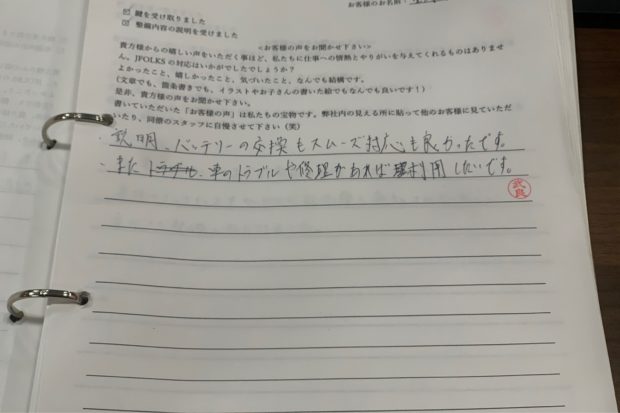 お客様のお名前：
☑ 鍵を受け取りました
☑ 整備内容の説明を受けました
<お客様の声をお聞かせ下さい>
貴方様からの嬉しい声をいただく事ほど、私たちに仕事への情熱とやりがいを与えてくれるものはありませ
ん。JFOLKSの対応はいかがでしたでしょうか？
よかったこと、嬉しかったこと、気づいたこと、なんでも結構です。
（文章でも、箇条書きでも、イラストやお子さんの書いた絵でもなんでも良いです！）
是非、貴方様の声をお聞かせ下さい。
書いていただいた「お客様の声」は私たちの宝物です。弊社内の見える所に貼って他のお客様に見ていただ
いたり、同僚のスタッフに自慢させて下さい（笑）
・説明、バッテリーの交換もスムーズ対応も良かったです。
・また 車のトラブルや修理があれば利用したいです。
武良